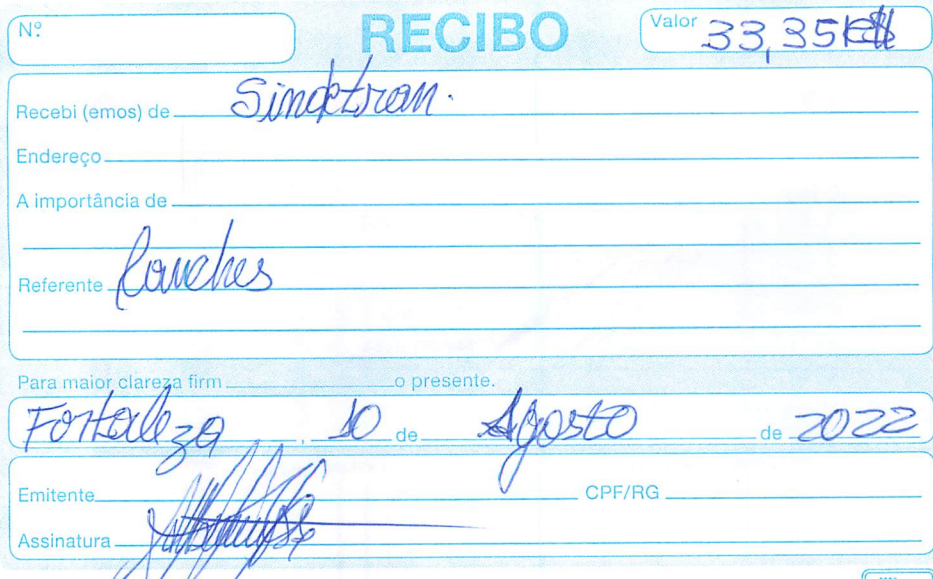 Nº RECIBO Valor 33,35
Recebi (emos) de Sindetran.
Endereço
A importância de
Referente Lanches
Para maior clareza firm o presente.
Fortaleza, 10 de Agosto de 2022
Emitente CPF/RG
Assinatura